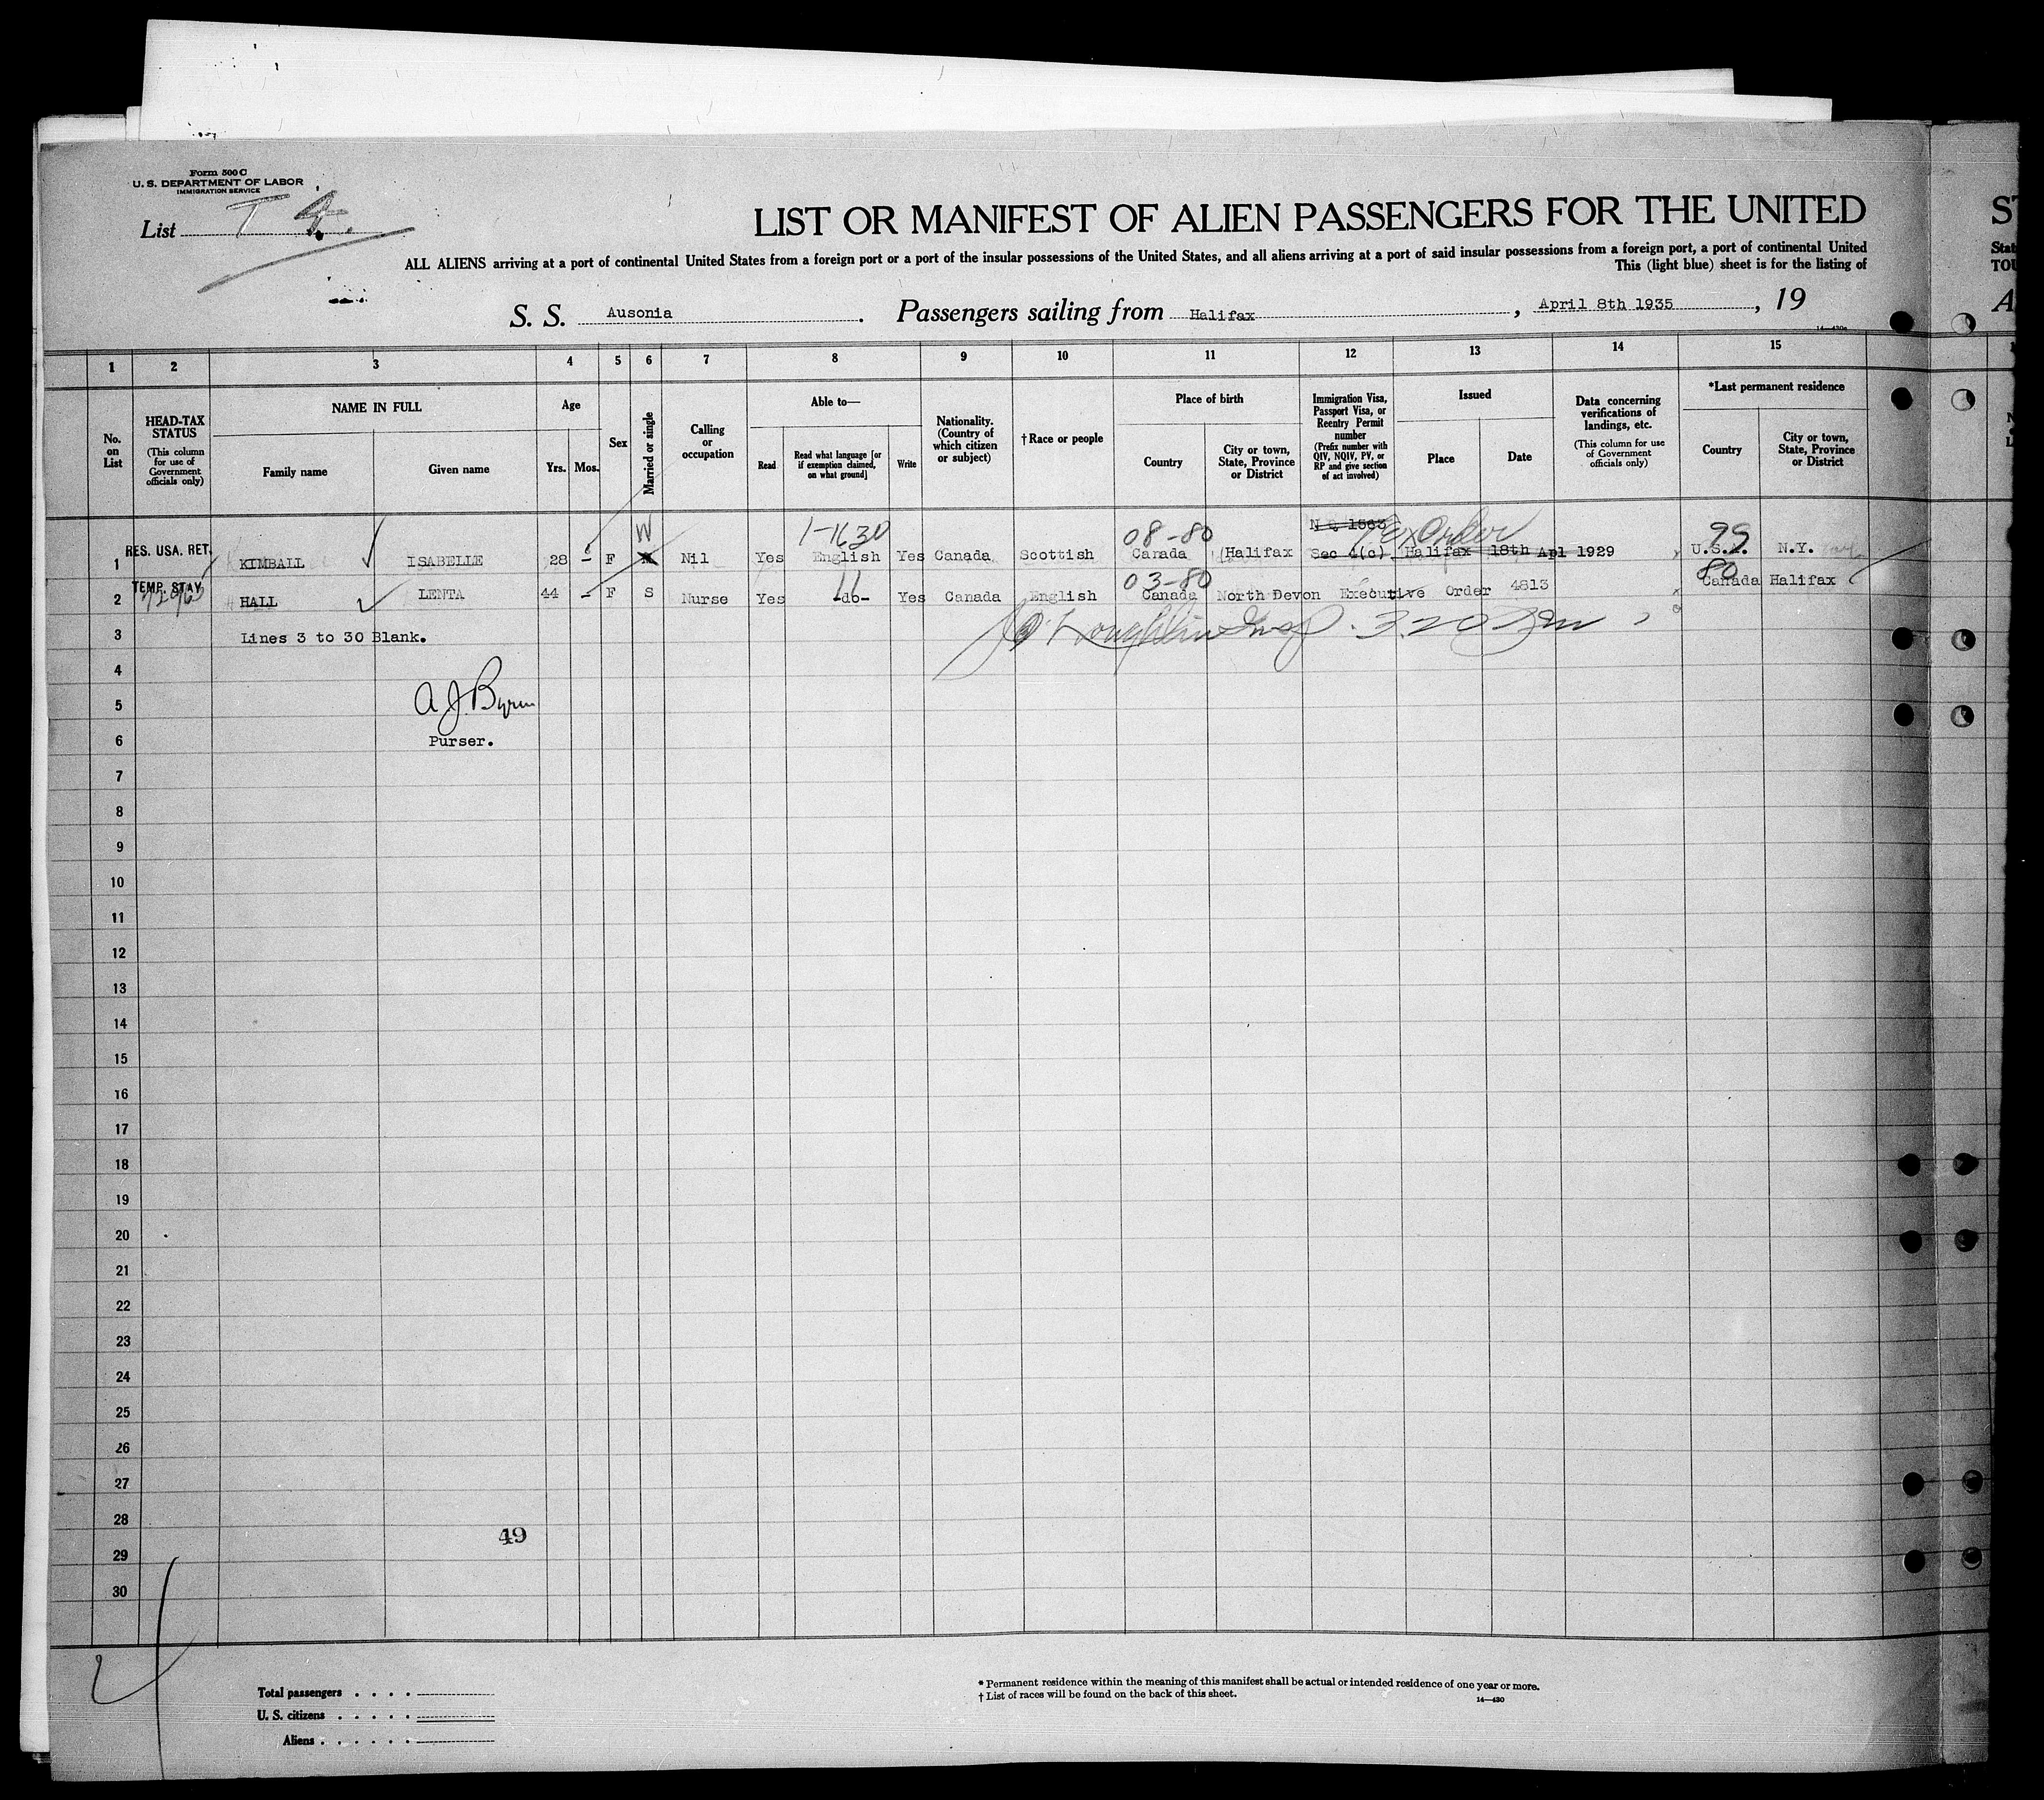 Form 500 C
U. S. DEPARTMENT OF LABOR
IMMIGRATION SERVICE
List
LIST OR MANIFEST OF ALIEN PASSENGERS FOR THE UNITED
ALL ALIENS arriving at a port of continental United States from a foreign port or a port of the insular possessions of the United States, and all aliens arriving at a port of said insular possessions from a foreign port, a port of continental United
This (light blue) sheet is for the listing of
S. S. Ausonia. Passengers sailing from Halifax, April 8th 1935, 19
1 2 3 4 5 6 7 8 9 10 11 12 13 14 15
No. on List
HEAD-TAX STATUS
(This column for use of Government officials only)
NAME IN FULL
Family name
Given name
Age
Yrs. Mos.
Sex
Married or single
Calling or occupation
Able to—
Read
Read what language [or if exemption claimed, on what ground]
Write
Nationality. (Country of which citizen or subject)
†Race or people
Place of birth
Country
City or town, State, Province or District
Immigration Visa, Passport Visa, or Reentry Permit number
(Prefix number with QIV, NQIV, PV, or RP and give section of act involved)
Issued
Place
Date
Data concerning verifications of landings, etc.
(This column for use of Government officials only)
*Last permanent residence
Country
City or town, State, Province or District
W 1-1630 08-80 N Q 1563 Ex Order 99
1 RES. USA. RET. KIMBALL ISABELLE 28 - F M Nil Yes English Yes Canada Scottish Canada (Halifax Sec 4(c) Halifax 18th Apl 1929 U.S.A. N.Y.
11 03-80 80
2 TEMP. STAY HALL LENTA 44 - F S Nurse Yes -do- Yes Canada English Canada North Devon Executive Order 4813 Canada Halifax
3 Lines 3 to 30 Blank.
4
5 A. J. Byrne
6 Purser.
7
8
9
10
11
12
13
14
15
16
17
18
19
20
21
22
23
24
25
26
27
28
49
29
30
Total passengers
U. S. citizens
Aliens
* Permanent residence within the meaning of this manifest shall be actual or intended residence of one year or more.
† List of races will be found on the back of this sheet.
14—430